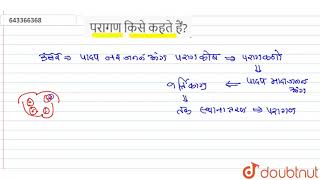 643366368
परागण किसे कहते हैं?
उत्तर ⇒ पादप नर जनन अंग परागकोष ⇒ परागकणों
⇓
वर्तिकाग्र ⇐ पादप मादा जनन अंग
तक स्थानांतरण ⇒ परागण
doubtnut